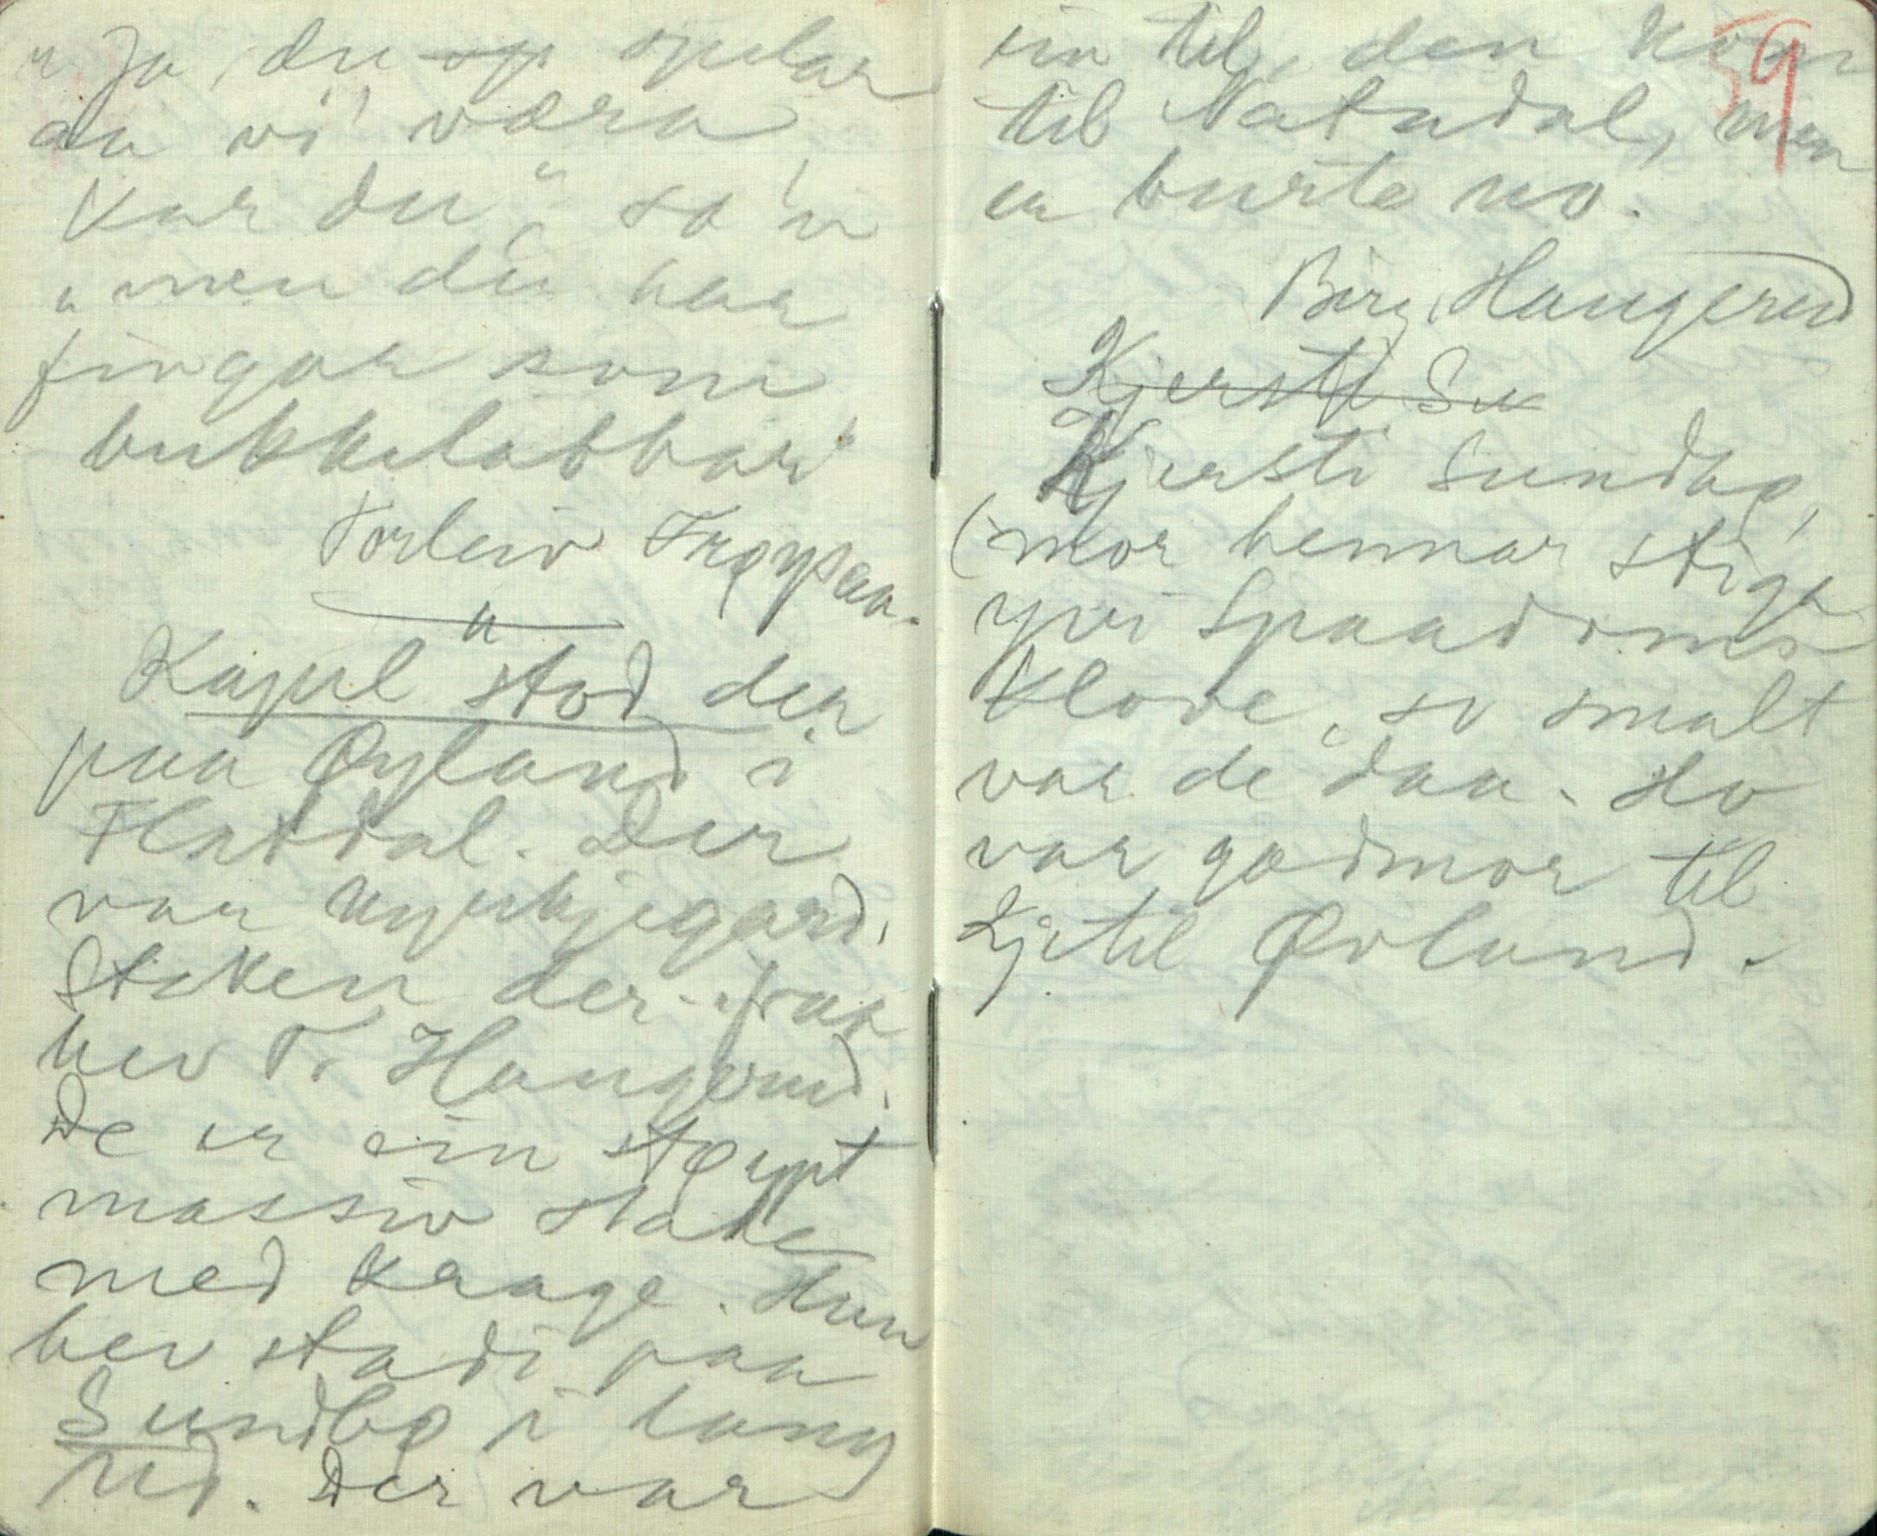 "Ja, du sp spelar
aa vi' væra,
kar du" sa'n
"men du har
fingar som
bukkelabbar"
Torleiv Frøysaa.
"
Kapel stod der
paa Øyland i
Flatdal. Der
var kyrkjegard.
Staken der-fraa
hev T. Haugerud.
De er ein støypt
massiv stake
med krage. Hun
hev stadi paa
Sundbø i lang
tid. Der var
ein til, den kom
til Natadal, men
er burte no.
Birg. Haugerud
Kjersti Su
Kjersti Sundbø,
(mor hennar stiga
yvi Spaadoms
Klove, so smalt
var de daa. Ho
var godmor til
Kjetil Øvlund.
59